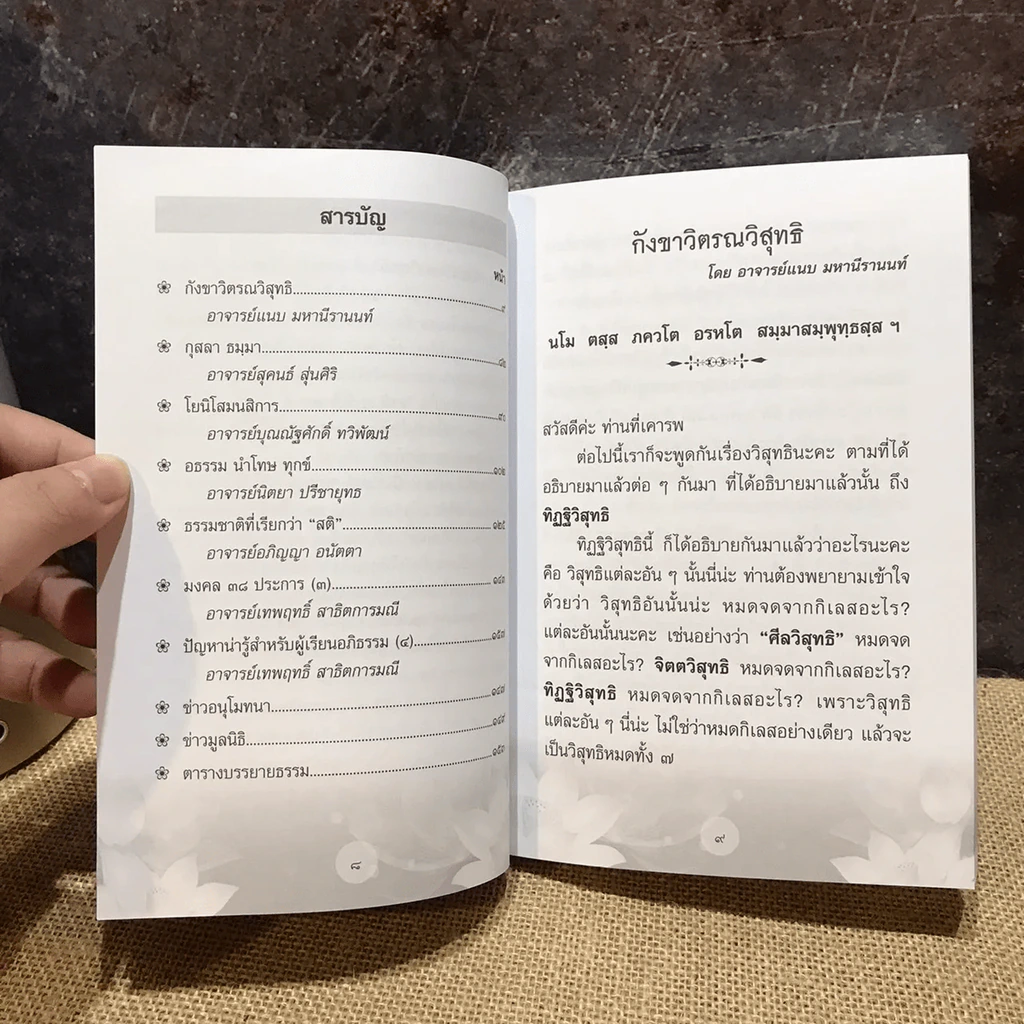 สารบัญ
หน้า
กังขาวิตรณวิสุทธิ....................๙
อาจารย์แนบ มหานีรานนท์
กุสลา ธมฺมา....................
อาจารย์สุคนธ์ สุ่นศิริ
โยนิโสมนสิการ....................๙๐
อาจารย์บุณณัฐศักดิ์ ทวิพัฒน์
อธรรม นำโทษ ทุกข์....................๑๐๒
อาจารย์นิตยา ปรีชายุทธ
ธรรมชาติที่เรียกว่า “สติ”....................๑๒๕
อาจารย์อภิญญา อนัตตา
มงคล ๓๘ ประการ (๓)....................
อาจารย์เทพฤทธิ์ สาธิตการมณี
ปัญหาน่ารู้สำหรับผู้เรียนอภิธรรม (๔)....................
อาจารย์เทพฤทธิ์ สาธิตการมณี
ข่าวอนุโมทนา....................
ข่าวมูลนิธิ....................
ตารางบรรยายธรรม....................
๘
กังขาวิตรณวิสุทธิ
โดย อาจารย์แนบ มหานีรานนท์
นโม ตสฺส ภควโต อรหโต สมฺมาสมฺพุทฺธสฺส ฯ
สวัสดีค่ะ ท่านที่เคารพ
ต่อไปนี้เราก็จะพูดกันเรื่องวิสุทธินะคะ ตามที่ได้
อธิบายมาแล้วต่อ ๆ กันมา ที่ได้อธิบายมาแล้วนั้น ถึง
ทิฏฐิวิสุทธิ
ทิฏฐิวิสุทธินี้ ก็ได้อธิบายกันมาแล้วว่าอะไรนะคะ
คือ วิสุทธิแต่ละอัน ๆ นั้นนี่น่ะ ท่านต้องพยายามเข้าใจ
ด้วยว่า วิสุทธิอันนั้นน่ะ หมดจดจากกิเลสอะไร?
แต่ละอันนั้นนะคะ เช่นอย่างว่า “ศีลวิสุทธิ” หมดจด
จากกิเลสอะไร? จิตตวิสุทธิ หมดจดจากกิเลสอะไร?
ทิฏฐิวิสุทธิ หมดจดจากกิเลสอะไร? เพราะวิสุทธิ
แต่ละอัน ๆ นี่น่ะ ไม่ใช่ว่าหมดกิเลสอย่างเดียว แล้วจะ
เป็นวิสุทธิหมดทั้ง ๗
๙